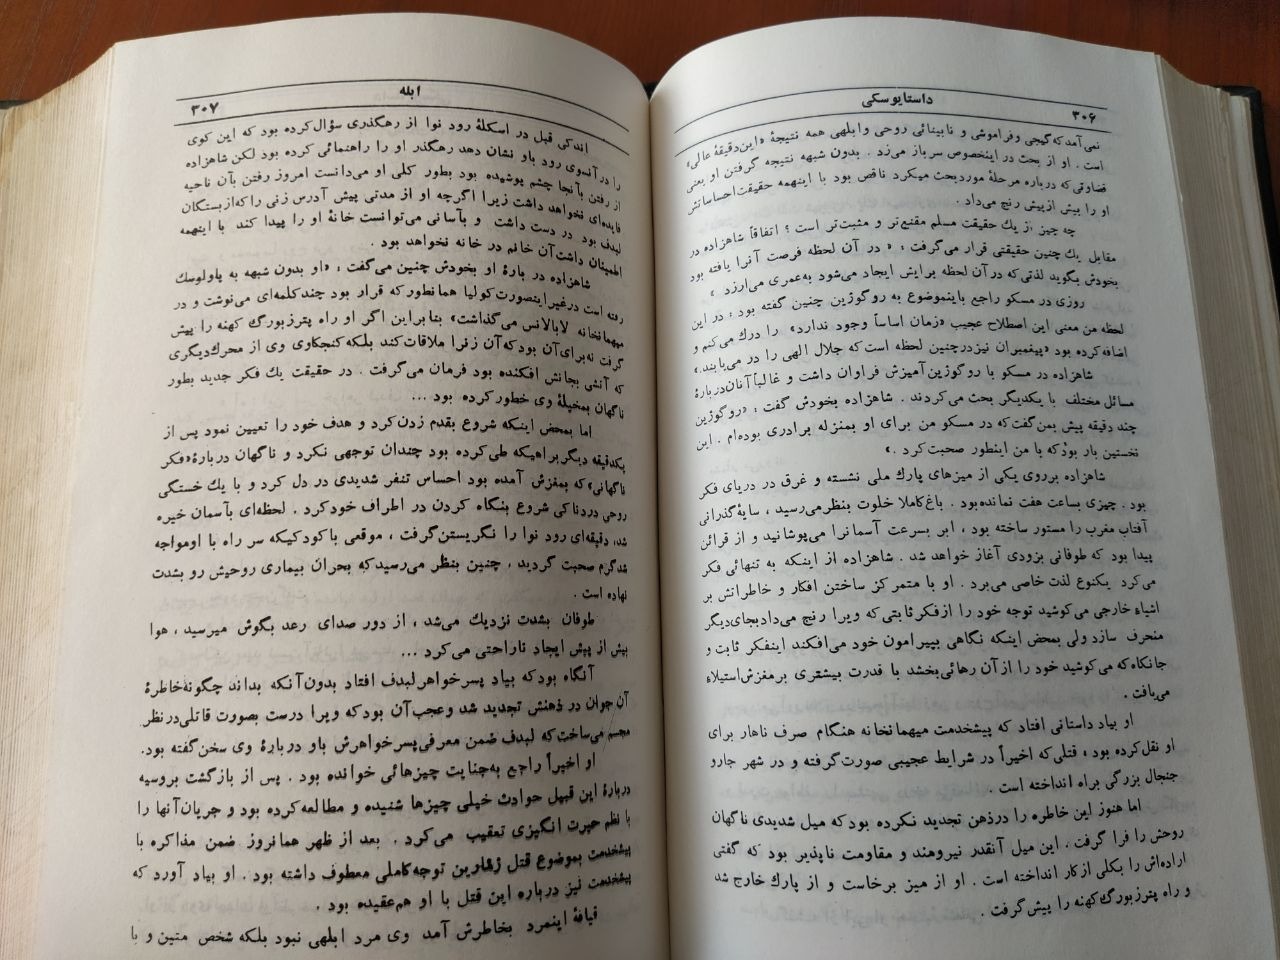 ۳۰۶
داستایوسکی
نمی‌آمد که گیجی وفراموشی و نابینائی روحی وابلهی همه نتیجهٔ «این‌دقیقهٔ عالی»
است . او از بحث در اینخصوص سرباز می‌زد . بدون شبهه نتیجه گرفتن او یعنی
قضاوتی که درباره مرحلهٔ موردبحث میکرد ناقص بود با اینهمه حقیقت‌احساساتش
او را بیش ازپیش رنج می‌داد .
چه چیز از یك حقیقت مسلم مقنع‌تر و مثبت‌تر است ؟ اتفاقاً شاهزاده در
مقابل یك چنین حقیقتی قرار می‌گرفت : « در آن لحظه فرصت آنرا یافته بود
بخودش بگوید لذتی‌که درآن لحظه برایش ایجاد می‌شود به‌عمری می‌ارزد »
روزی در مسکو راجع باینموضوع به روگوژین چنین گفته بود : در این
لحظه من معنی این اصطلاح عجیب «زمان اساساً وجود ندارد» را درك می‌کنم و
اضافه‌کرده بود «پیغمبران نیزدرچنین لحظه است‌که جلال الهی را در می‌یابند.»
شاهزاده در مسکو با روگوژین‌آمیزش فراوان داشت و غالباً آنان‌دربارهٔ
مسائل مختلف با یکدیگر بحث می‌کردند . شاهزاده بخودش گفت : «روگوژین
چند دقیقه پیش بمن‌گفت‌که در مسکو من برای او بمنزله برادری بوده‌ام . این
نخستین بار بودکه با من اینطور صحبت‌کرد . »
شاهزاده برروی یکی از میزهای پارك ملی نشسته و غرق در دریای فکر
بود . چیزی بساعت هفت نمانده‌بود . باغ‌کاملا خلوت بنظرمی‌رسید ، سایهٔ‌گذرانی
آفتاب مغرب را مستور ساخته بود ، ابر بسرعت آسمانرا می‌پوشانید و از قرائن
پیدا بود که طوفانی بزودی آغاز خواهد شد . شاهزاده از اینکه به تنهائی فکر
می‌کرد یکنوع لذت خاصی می‌برد . او با متمرکز ساختن افکار و خاطراتش بر
اشیاء خارجی می‌کوشید توجه خود را ازفکرثابتی‌که ویرا رنج می‌دادبجای‌دیگر
منحرف سازد ولی بمحض اینکه نگاهی بپیرامون خود می‌افکند اینفکر ثابت و
جانکاه‌که می‌کوشید خود را ازآن رهائی‌بخشد با قدرت بیشتری برمغزش‌استیلاء
می‌یافت .
او بیاد داستانی افتاد که پیشخدمت میهمانخانه هنگام صرف ناهار برای
او نقل‌کرده بود ؛ قتلی‌که اخیراً در شرایط عجیبی صورت‌گرفته و در شهر جارو
جنجال بزرگی براه انداخته است .
اما هنوز این خاطره را درذهن تجدید نکرده بودکه میل شدیدی ناگهان
روحش را فرا گرفت . این میل آنقدر نیرومند و مقاومت ناپذیر بود که گفتی
اراده‌اش را بکلی ازکار انداخته است . او از میز برخاست و از پارك خارج شد
و راه پترزبورگ‌کهنه را پیش‌گرفت .
ابله
۳۰۷
اندکی قبل در اسکلهٔ رود نوا از رهگذری سؤال‌کرده بود که این کوی
را درآنسوی رود باو نشان دهد رهگذر او را راهنمائی کرده بود لکن شاهزاده
از رفتن بآنجا چشم پوشیده بود بطور کلی او می‌دانست امروز رفتن بآن ناحیه
فایده‌ای نخواهد داشت زیرا اگرچه او از مدتی پیش آدرس زنی راکه‌ازبستگان
لبدف بود در دست داشت و بآسانی می‌توانست خانهٔ او را پیدا کند با اینهمه
اطمینان داشت‌آن خانم در خانه نخواهد بود .
شاهزاده در بارهٔ او بخودش چنین می‌گفت : «او بدون شبهه به پاولوسك
رفته است درغیراینصورت‌کولیا همانطورکه قرار بود چندکلمه‌ای می‌نوشت و در
میهمانخانه لابالانس می‌گذاشت» بنابراین اگر او راه پترزبورگ کهنه را پیش
گرفت نه‌برای‌آن بودکه‌آن زنرا ملاقات‌کند بلکه‌کنجکاوی وی از محرك‌دیگری
که آتشی بجانش افکنده بود فرمان می‌گرفت . در حقیقت یك فکر جدید بطور
ناگهان بمخیلهٔ وی خطورکرده بود ...
اما بمحض اینکه شروع بقدم زدن‌کرد و هدف خود را تعیین نمود پس از
یکدقیقه دیگربراهیکه طی‌کرده بود چندان توجهی نکرد و ناگهان دربارهٔ «فکر
ناگهانی»که بمغزش آمده بود احساس تنفر شدیدی در دل کرد و با یك خستگی
روحی دردناکی شروع بنگاه کردن در اطراف خودکرد . لحظه‌ای بآسمان خیره
شد، دقیقه‌ای رود نوا را نگریستن‌گرفت ، موقعی باکودکیکه سر راه با اومواجه
شدگرم صحبت گردید ، چنین بنظر می‌رسیدکه بحران بیماری روحیش رو بشدت
نهاده است .
طوفان بشدت نزدیك می‌شد ، از دور صدای رعد بگوش میرسید ، هوا
بیش از پیش ایجاد ناراحتی می‌کرد ...
آنگاه بودکه بیاد پسرخواهرلبدف افتاد بدون‌آنکه بداند چگونه‌خاطرهٔ
آن‌جوان در ذهنش تجدید شد وعجب‌آن بودکه ویرا درست بصورت قاتلی‌درنظر
مجسم می‌ساخت‌که لبدف ضمن معرفی‌پسرخواهرش باو دربارهٔ وی سخن‌گفته بود.
او اخیراً راجع به‌جنایت چیزهائی خوانده بود . پس از بازگشت بروسیه
دربارهٔ این قبیل حوادث خیلی چیزها شنیده و مطالعه‌کرده بود و جریان‌آنها را
با نظم حیرت انگیزی تعقیب می‌کرد . بعد از ظهر همانروز ضمن مذاکره با
پیشخدمت بموضوع قتل ژمارین توجه‌کاملی معطوف داشته بود . او بیاد آورد که
پیشخدمت نیز درباره این قتل با او هم‌عقیده بود .
قیافهٔ اینمرد بخاطرش آمد وی مرد ابلهی نبود بلکه شخص متین و با